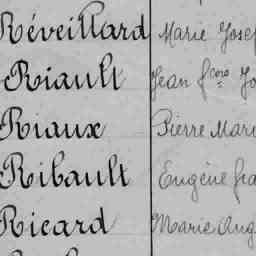 Réveillard Marie Josep
Riault Jean fçois Jo
Riaux Pierre Mari
Ribault Eugène fra
Ricard Marie Ang